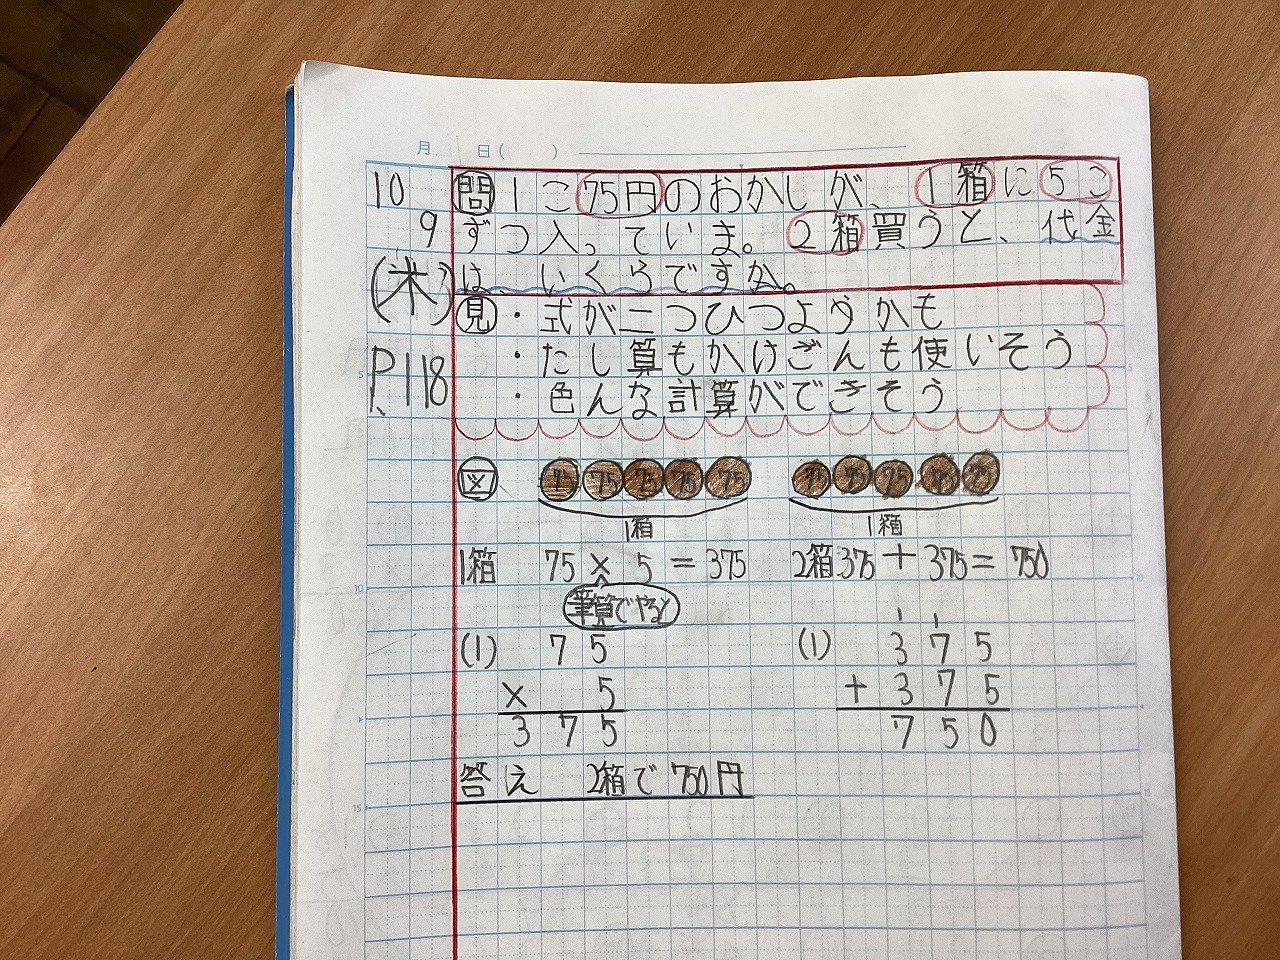 月 日( )
10
9
(木)
P.118
問 1こ75円のおかしが、1箱に5こ
ずつ入っていま。2箱買うと、代金
は、いくらですか。
見 ・式が二つひつようかも
・たし算もかけざんも使いそう
・色んな計算ができそう
図 75 75 75 75 75 75 75 75 75 75
1箱 1箱
1箱 75×5=375 2箱 375+375=750
筆算でやると
1 1
(1) 75 (1) 375
× 5 +375
375 750
答え 2箱で750円